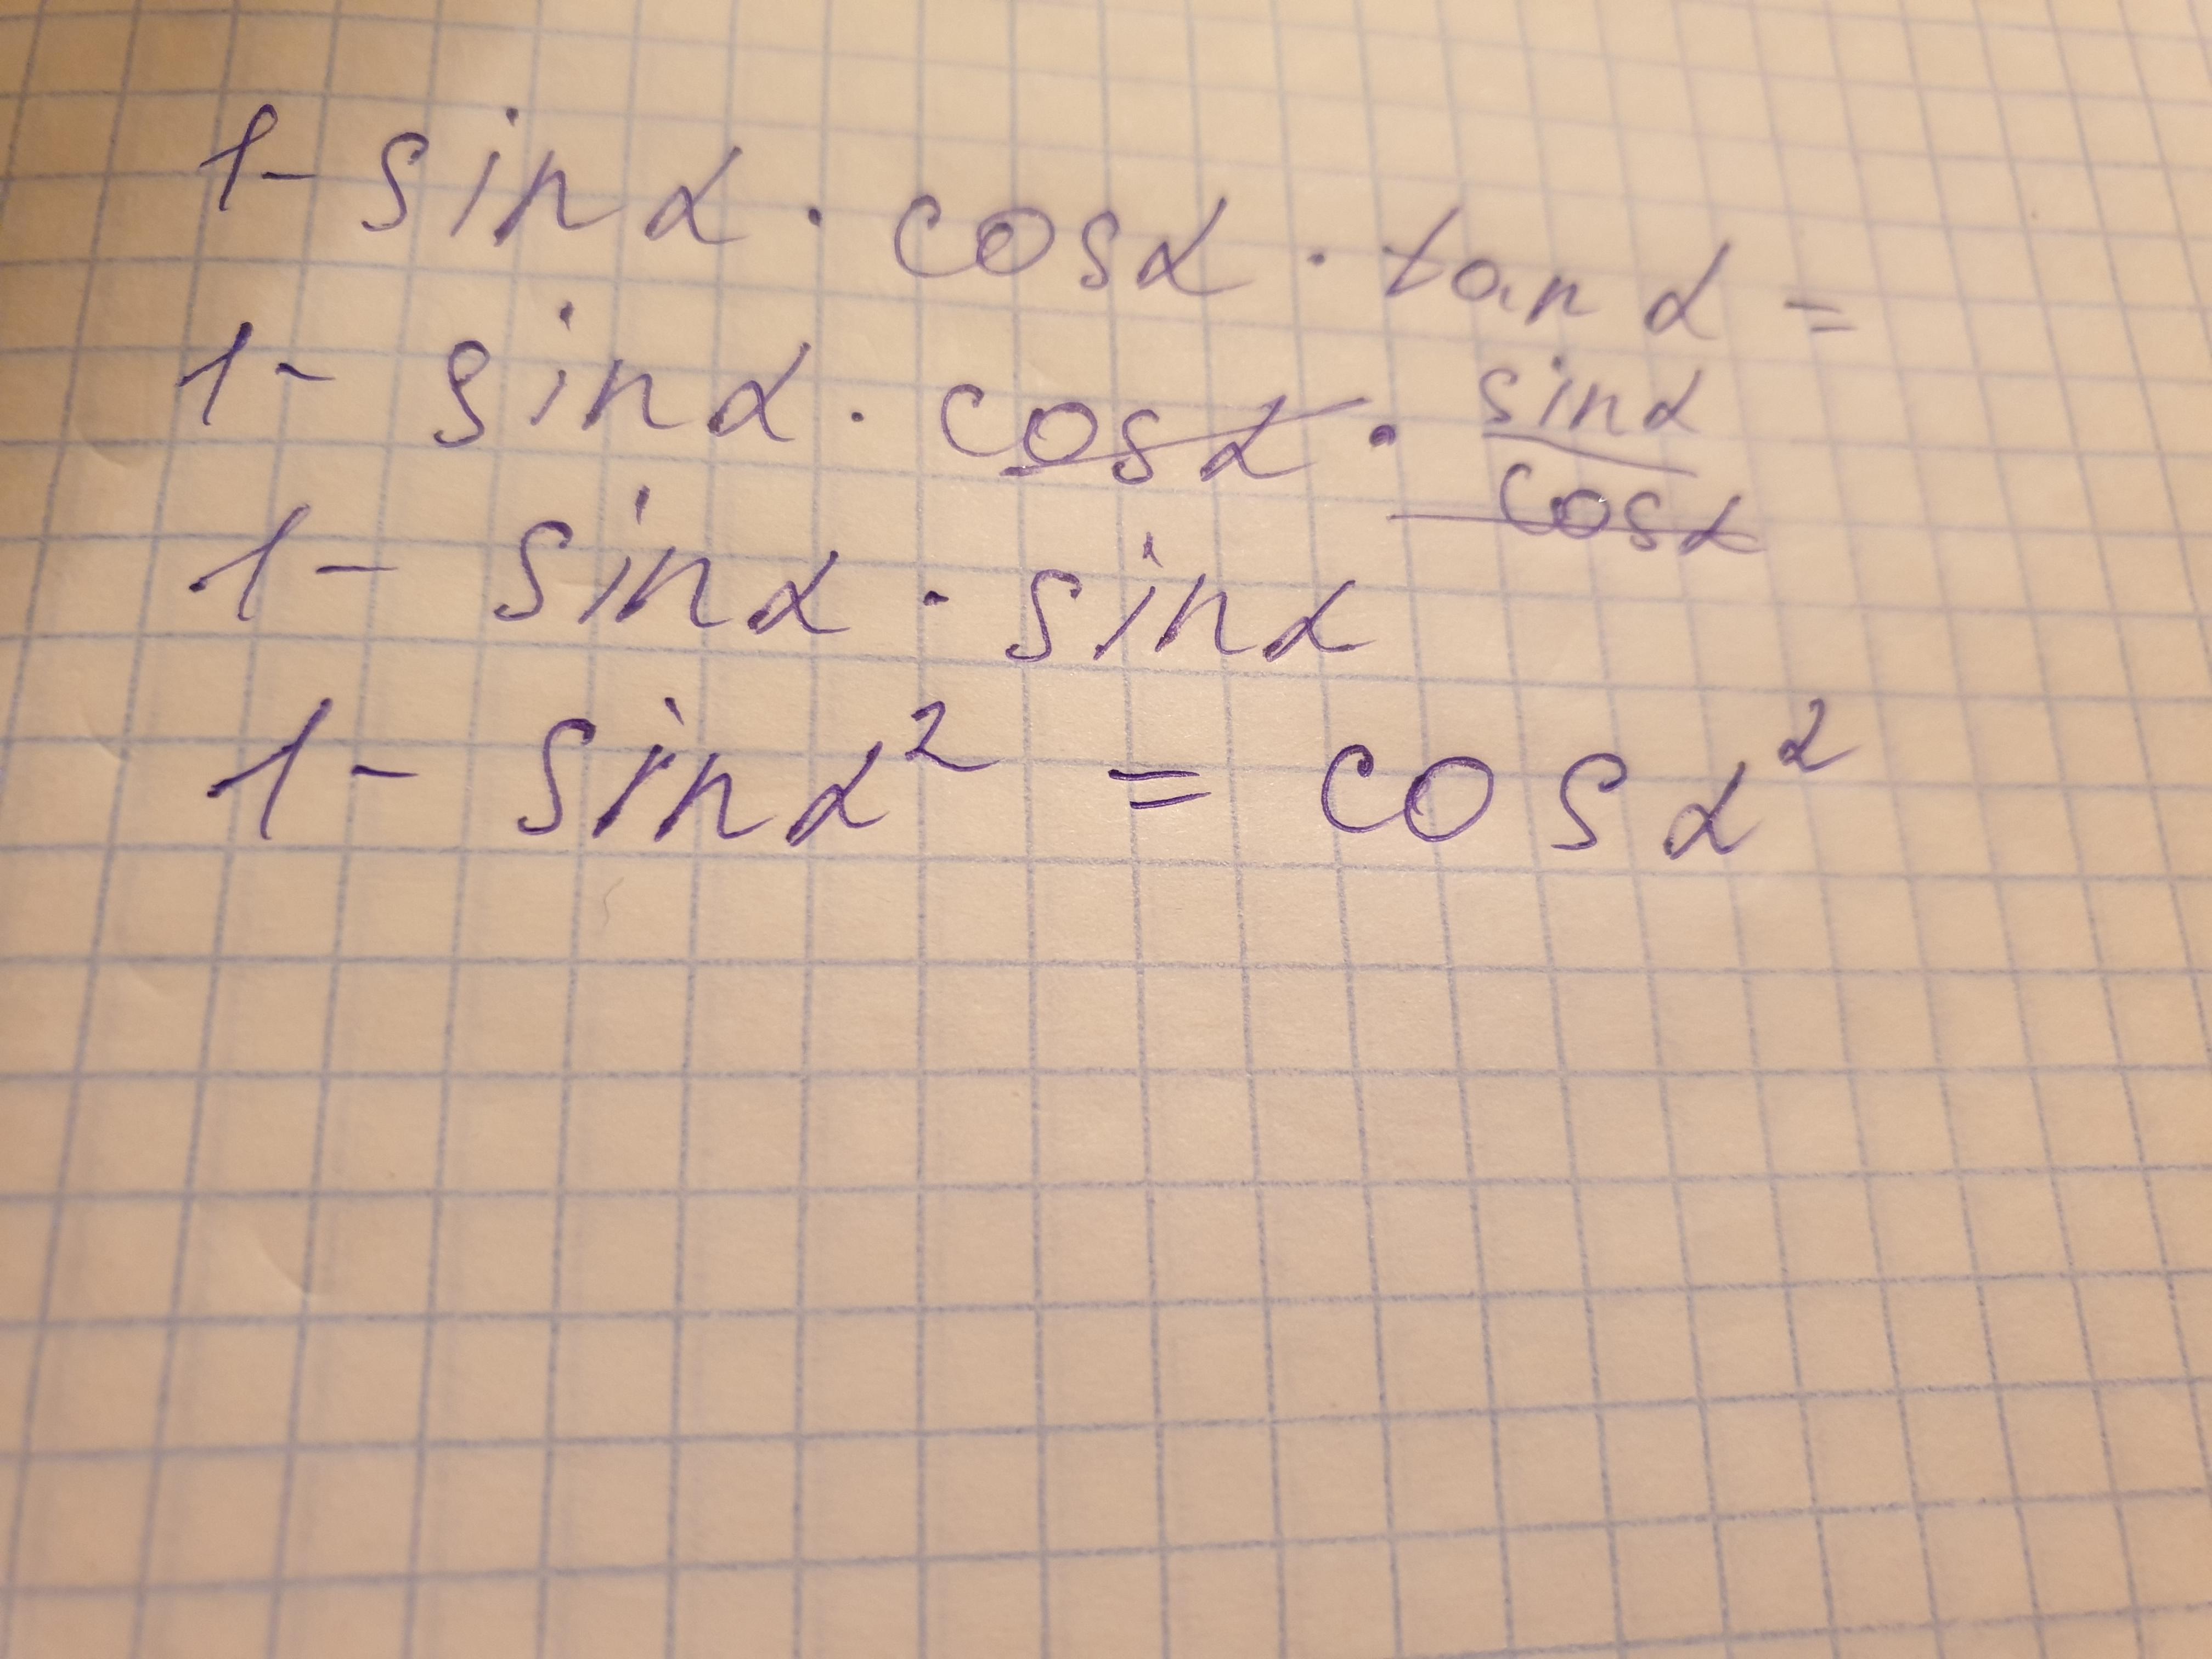 1 - sin α · cos α · tan α =
1 - sin α · cos α · sin α / cos α
1 - sin α · sin α
1 - sin α² = cos α²